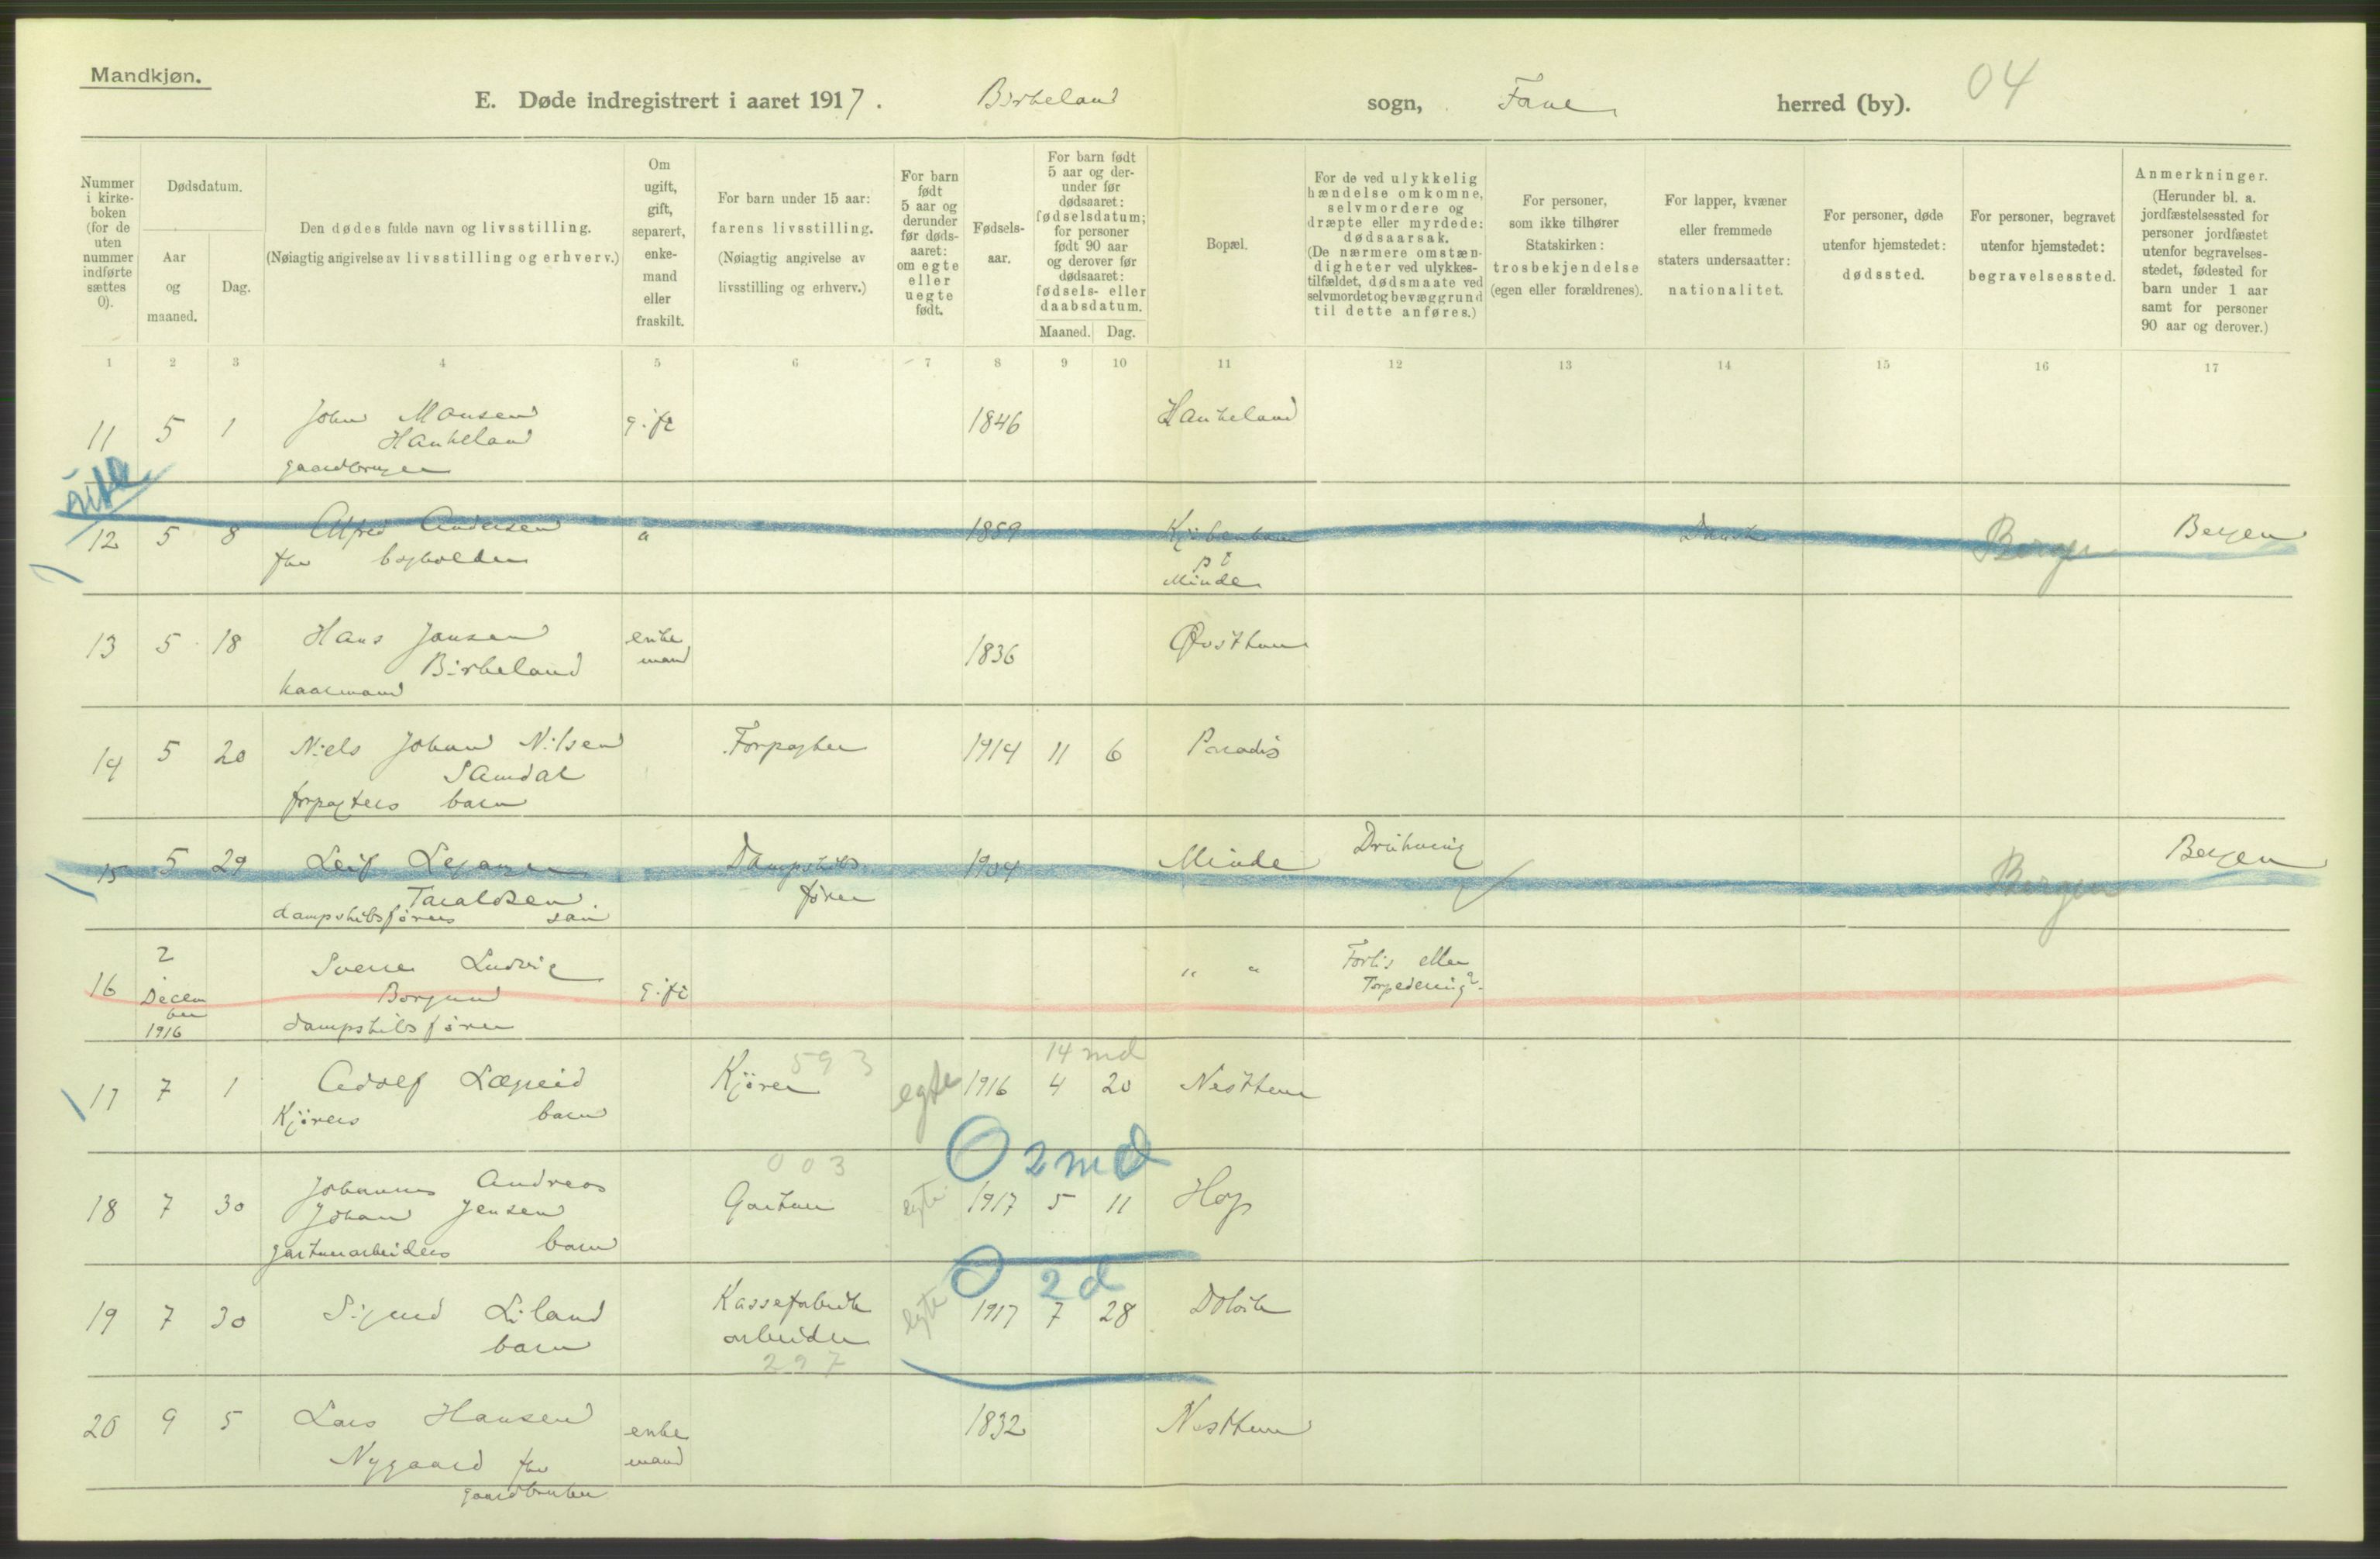 Mandkjøn.
E. Døde indregistrert i aaret 1917. Birkeland sogn, Fane herred (by). 04
Nummer i kirkeboken (for de uten nummer indførte sættes 0).
Dødsdatum.
Aar og maaned.
Dag.
Den dødes fulde navn og livsstilling.
(Nøiagtig angivelse av livsstilling og erhverv.)
Om ugift, gift, separert, enkemand eller fraskilt.
For barn under 15 aar: farens livsstilling.
(Nøiagtig angivelse av livsstilling og erhverv.)
For barn født 5 aar og derunder før dødsaaret: om egte eller uegte født.
Fødselsaar.
For barn født 5 aar og derunder før dødsaaret: fødselsdatum; for personer født 90 aar og derover før dødsaaret: fødsels- eller daabsdatum.
Maaned. Dag.
Bopæl.
For de ved ulykkelig hændelse omkomne, selvmordere og dræpte eller myrdede: dødsaarsak.
(De nærmere omstændigheter ved ulykkestilfældet, dødsmaate ved selvmordet og bevæggrund til dette anføres.)
For personer, som ikke tilhører Statskirken: trosbekjendelse (egen eller forældrenes).
For lapper, kvæner eller fremmede staters undersaatter: nationalitet.
For personer, døde utenfor hjemstedet: dødssted.
For personer, begravet utenfor hjemstedet: begravelsessted.
Anmerkninger.
(Herunder bl. a. jordfæstelsessted for personer jordfæstet utenfor begravelsesstedet, fødested for barn under 1 aar samt for personer 90 aar og derover.)
1 2 3 4 5 6 7 8 9 10 11 12 13 14 15 16 17
11 5 1 John Monsen gift 1846 Haukeland
Haukeland
gaardbruger
12 5 8 Alfred Andersen " 1859 Kjøbenhavn Dansk Bergen Bergen
fhv bogholder pt
Minde
13 5 18 Hans Jansen enke 1836 Øvsttun
Birkeland mand
kaarmand
14 5 20 Niels Johan Nilsen Forpagter 1914 11 6 Paradis
Samdal
forpagters barn
15 5 29 Leif Dampskibs 1904 Minde Drukning Bergen Bergen
Taraldsen fører
dampskibsførers søn
2 Sverre Ludvig " " Forlis eller
16 Decem Borgund gift Torpedering?
ber
1916 dampskibsfører
593 14 md
17 7 1 Adolf Lægreid Kjører egte 1916 4 20 Nesttun
Kjørers barn
003 0 2 md
18 7 30 Johannes Andreas Gartner egte 1917 5 11 Hop
Johan Jensen
gartnerarbeiders barn
0 2 d
19 7 30 Sigurd Liland Kassefabrik egte 1917 7 28 Dolvik
barn arbeider
297
20 9 5 Lars Hansen enke 1832 Nesttun
Nygaard fhv mand
gaardbruker